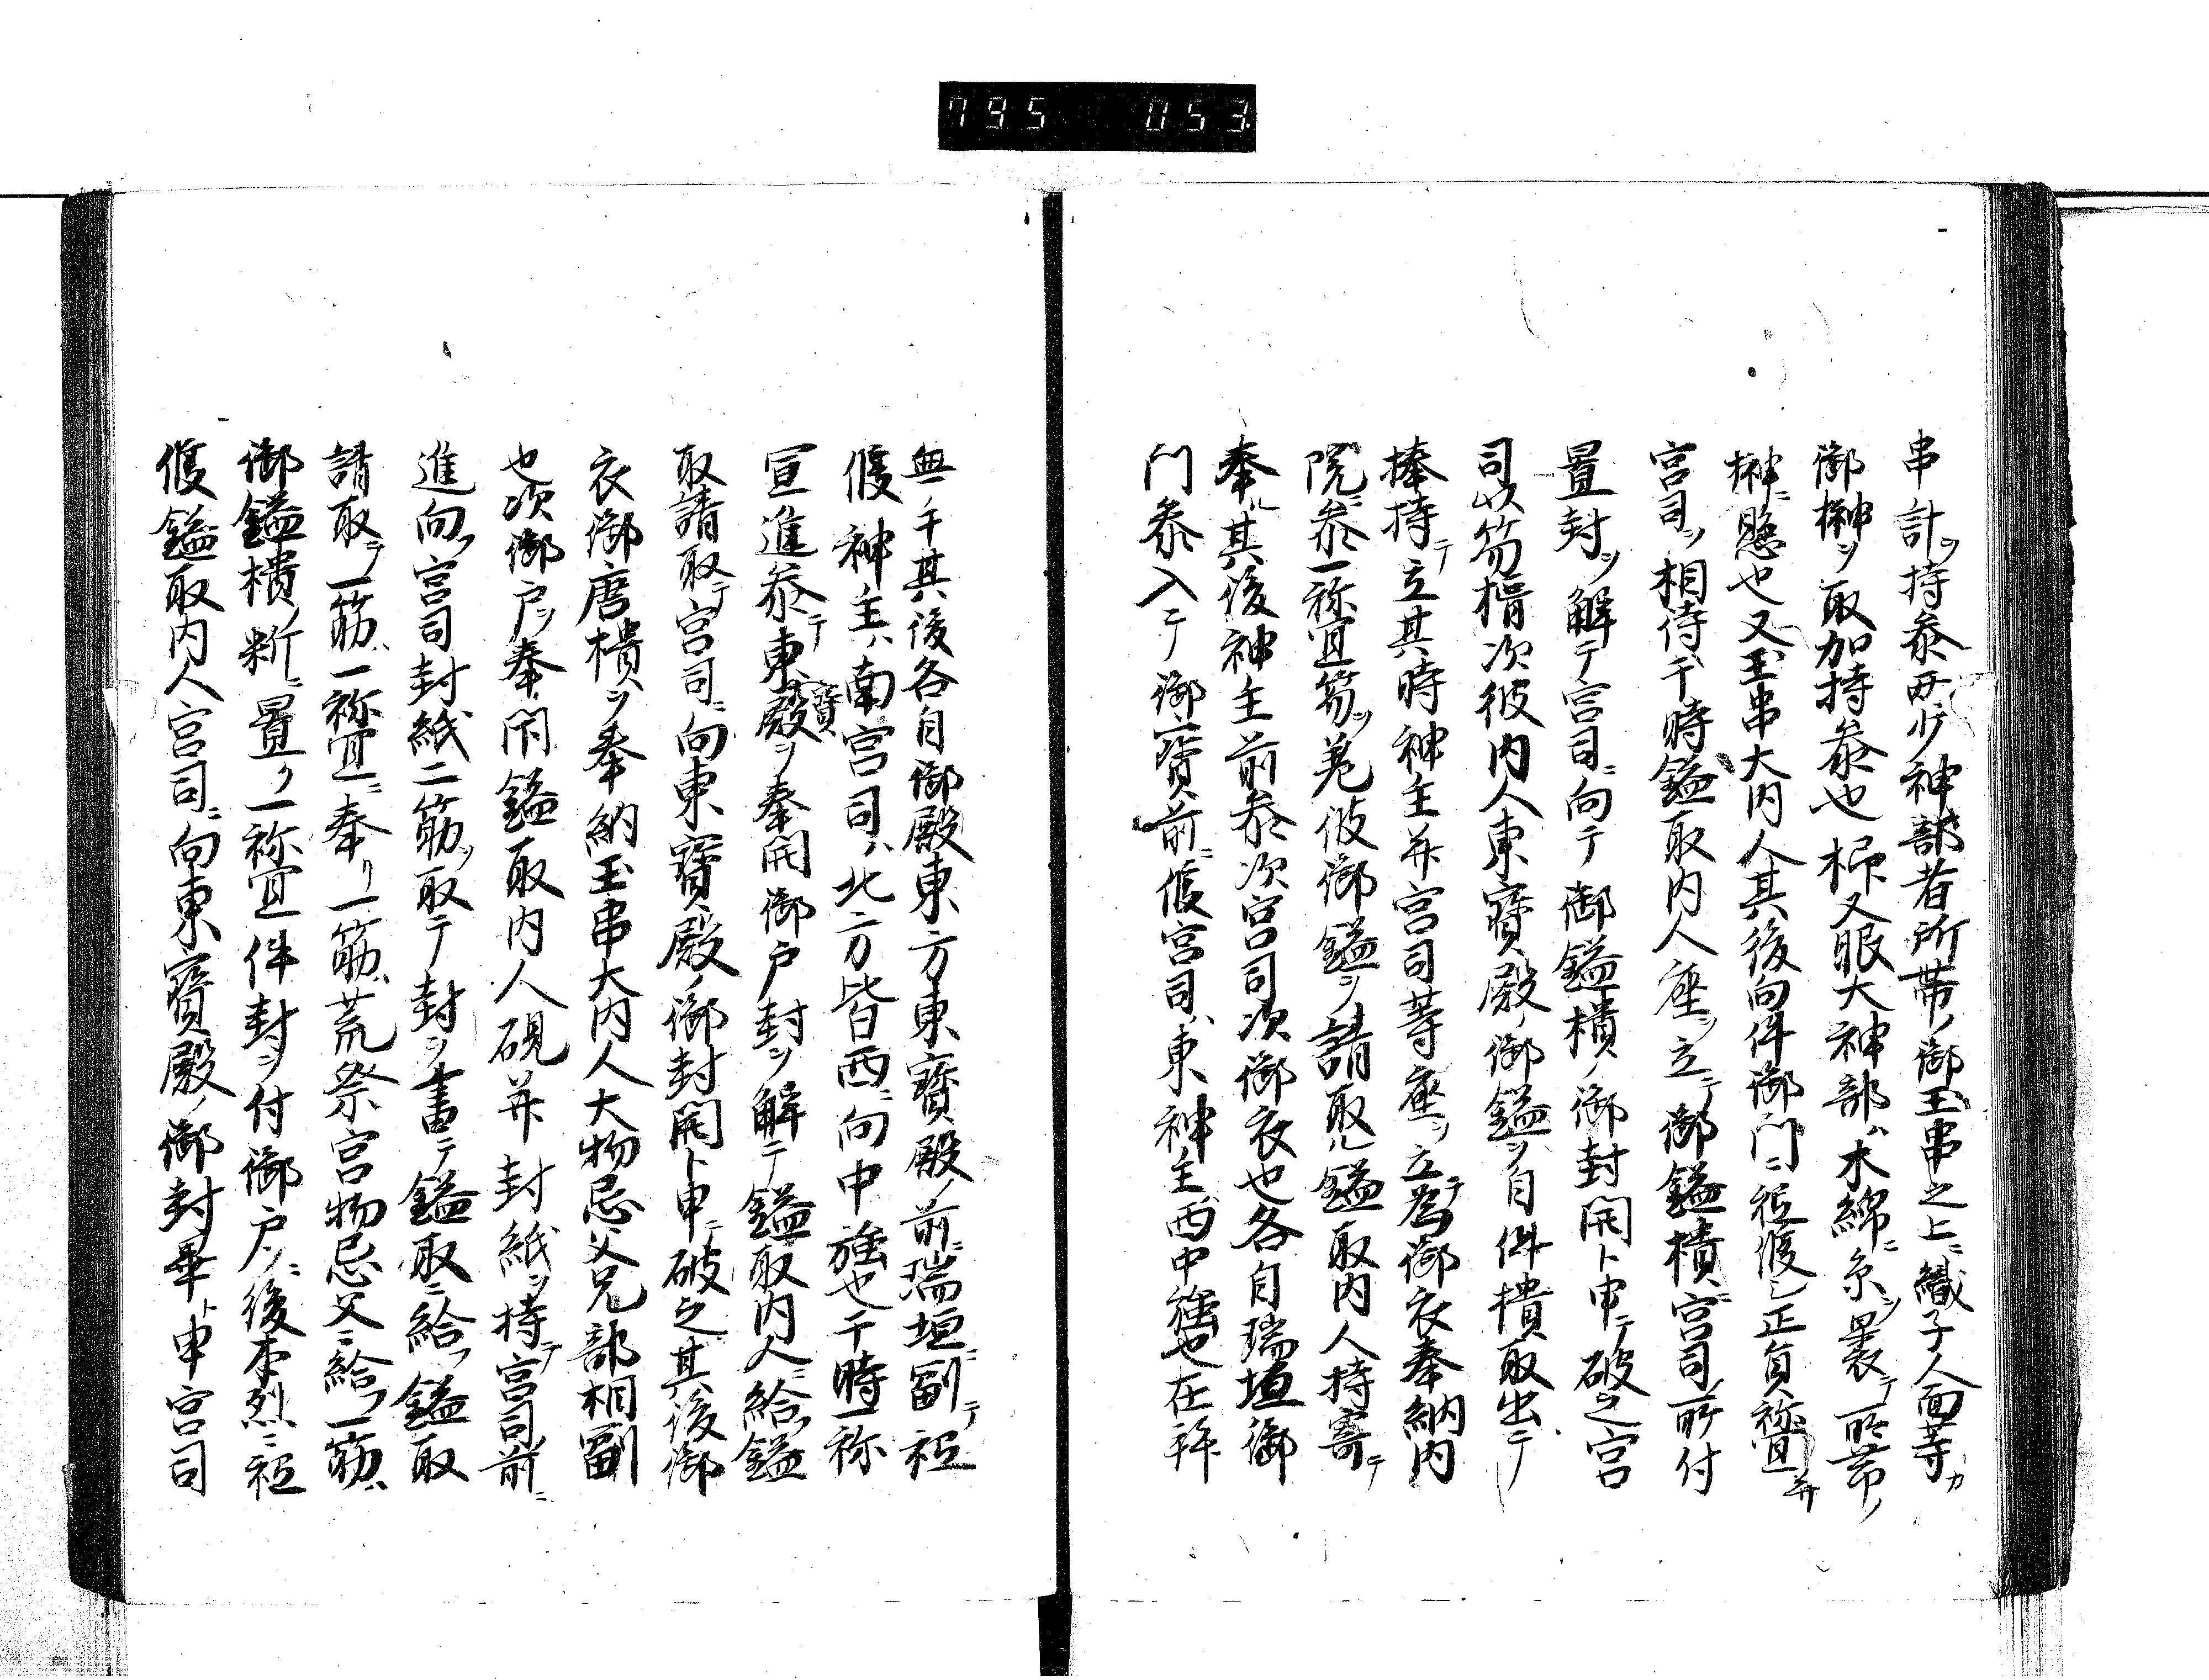 795 053
串計ヲ持参両
神部者所帯ノ御玉串之上ニ織子人面等
御榊ヲ取加持参也又服大神部ハ木綿ニ糸ヲ褁テ所帯ノ
榊ニ懸也又玉串大内人其後向件御門ニ祗候シ正員祢宜并
宮司ヲ相待干時鎰取内人座ヲ立テ御鎰樻ニ宮司ノ所付
置封ヲ解テ宮司ニ向テ御鎰樻ノ御封開ト申テ破之宮
司以笏揖次彼内人東寳殿ノ御鎰ヲ自件樻取出テ
捧持テ立其時神主并宮司等座ヲ立テ為御衣奉納内
院ニ参一祢宜笏ヲ差彼御鎰ヲ請取ル鎰取内人持寄テ
奉ル其後神主前参次宮司次御衣也各自瑞垣御
門参入テ御寳前ニ候宮司ハ東神主西中強也在拜
無干其後各自御殿東方東寳殿ノ前ニ瑞垣ニ副テ祗
候神主ハ南宮司ハ北方皆西ニ向中強也干時一祢
宜進参テ東寳殿ヲ奉開御戸封ヲ解テ鎰取内人ニ給フ鎰
取請取テ宮司ニ向東寳殿ノ御封開ト申テ破之其後御
衣御唐樻ヲ奉納玉串大内人大物忌父兄部相副
也次御戸ヲ奉閇鎰取内人硯并封紙ヲ持テ宮司前ニ
進向フ宮司封紙二筋ヲ取テ封ヲ書テ鎰取ニ給フ鎰取
請取テ一筋ハ一祢宜ニ奉リ一筋ハ荒祭宮物忌父ニ給フ一筋ハ
御鎰樻ノ断ニ置ク一祢宜件封ヲ付御戸ニ後本烈ニ祗
候鎰取内人宮司ニ向東寳殿ノ御封畢ト申宮司